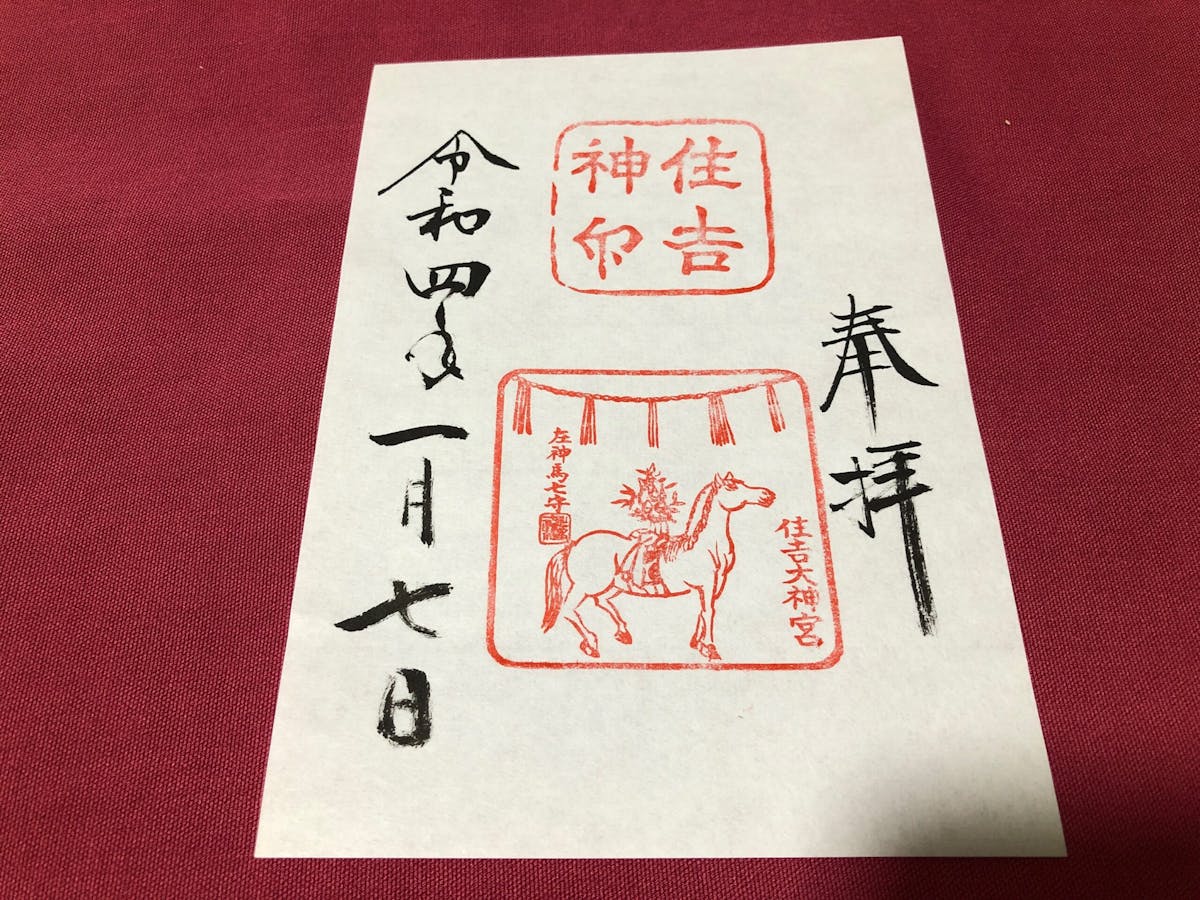 奉拝
住吉
神印
住吉大神宮
左神馬七守
令和四年一月七日